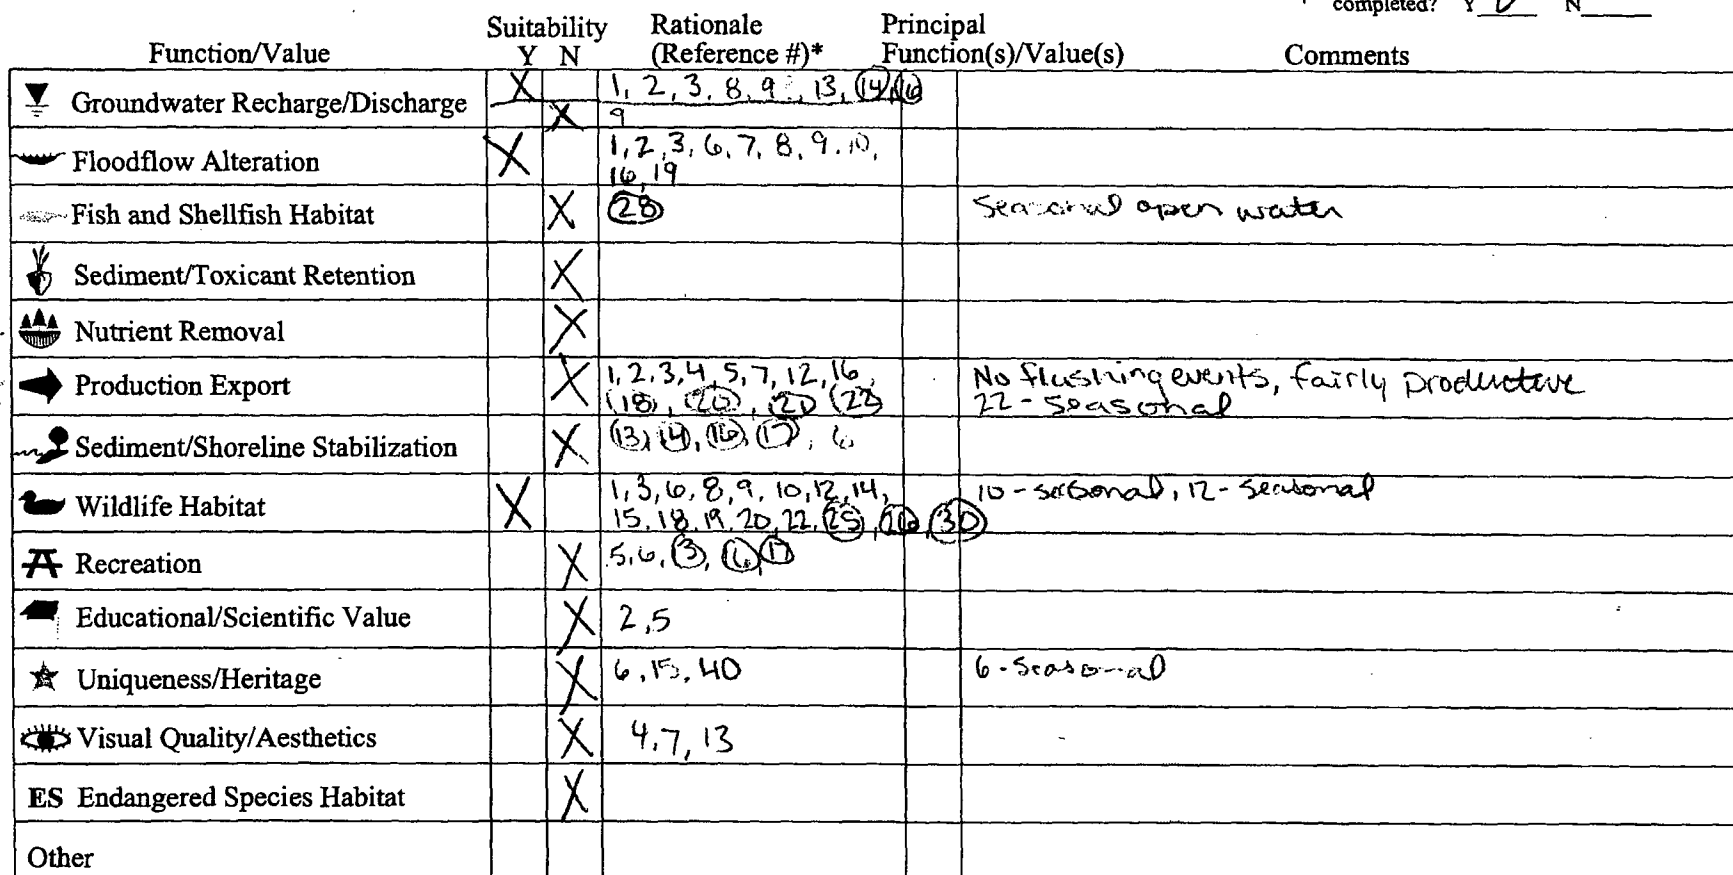 completed? Y ✓ N
Suitability Rationale Principal
Function/Value Y N (Reference #)* Function(s)/Value(s) Comments
Groundwater Recharge/Discharge X 1, 2, 3, 8, 9, 13, 14, 16
X 9
Floodflow Alteration X 1, 2, 3, 6, 7, 8, 9, 10,
16, 19
Fish and Shellfish Habitat X 28 Seasonal open water
Sediment/Toxicant Retention X
Nutrient Removal X
Production Export X 1, 2, 3, 4, 5, 7, 12, 16, No flushing events, fairly productive
18, 20, 21, 22 22 - seasonal
Sediment/Shoreline Stabilization X 13, 14, 16, 17, 6
Wildlife Habitat X 1, 3, 6, 8, 9, 10, 12, 14, 10 - seasonal, 12 - seasonal
15, 18, 19, 20, 22, 25, 30
Recreation X 5, 6, 3,
Educational/Scientific Value X 2, 5
Uniqueness/Heritage X 6, 15, 40 6 - seasonal
Visual Quality/Aesthetics X 4, 7, 13
ES Endangered Species Habitat X
Other